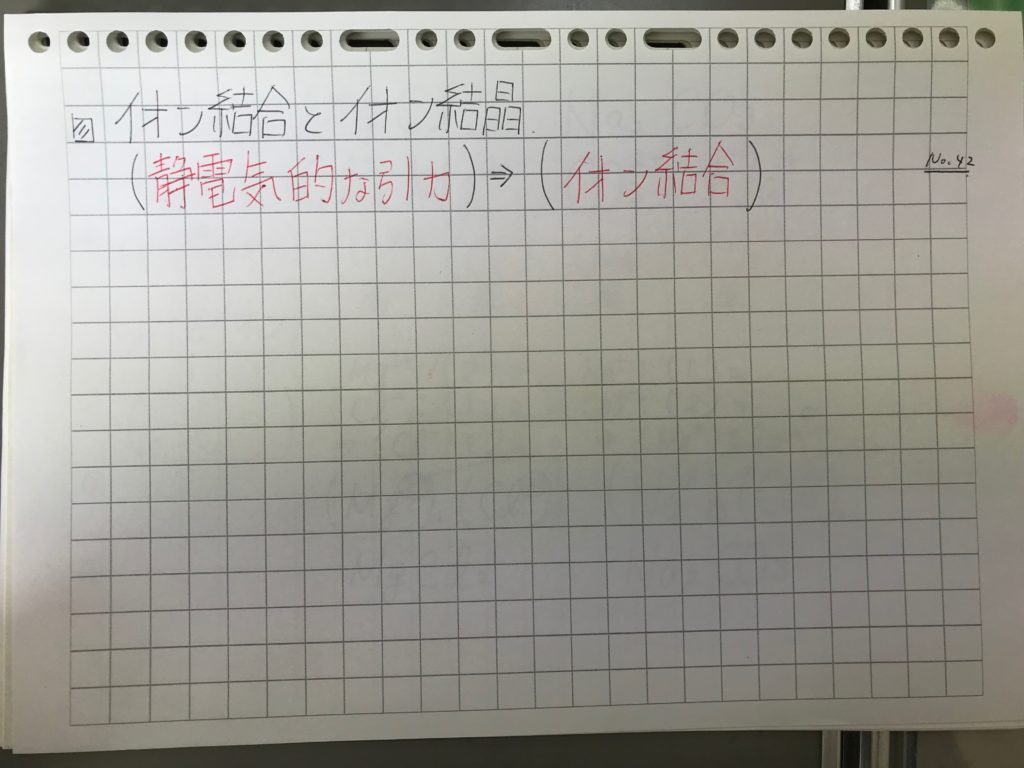 イオン結合とイオン結晶.
(静電気的な引力)⇒(イオン結合)
No.42